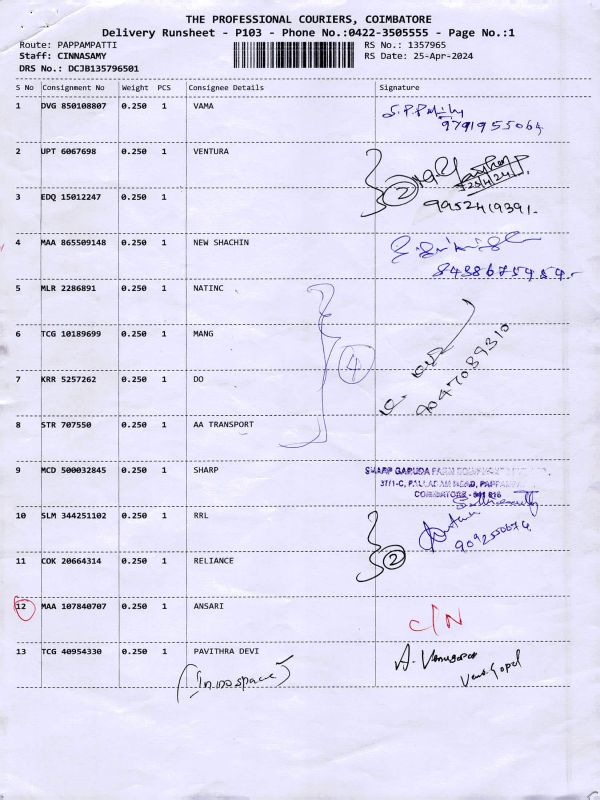 THE PROFESSIONAL COURIERS, COIMBATORE
Delivery Runsheet - P103 - Phone No.:0422-3505555 - Page No.:1
Route: PAPPAMPATTI RS No.: 1357965
Staff: CINNASAMY RS Date: 25-Apr-2024
DRS No.: DCJB135796501
S No Consignment No Weight PCS Consignee Details Signature
1 DVG 850108807 0.250 1 VAMA
9791955064
2 UPT 6067698 0.250 1 VENTURA
2
25/4/24
3 EDQ 15012247 0.250 1
9952419391.
4 MAA 865509148 0.250 1 NEW SHACHIN
8438675959.
5 MLR 2286891 0.250 1 NATINC
6 TCG 10189699 0.250 1 MANG
4
9047089310
7 KRR 5257262 0.250 1 DO
8 STR 707550 0.250 1 AA TRANSPORT
9 MCD 500032845 0.250 1 SHARP
SHARP GARUDA FARM
37/1-C, PALLADAM ROAD,
COIMBATORE
10 SLM 344251102 0.250 1 RRL
11 COK 20664314 0.250 1 RELIANCE
2
12 MAA 107840707 0.250 1 ANSARI
C/N
13 TCG 40954330 0.250 1 PAVITHRA DEVI
A. Venugopal
Venugopal
(Innospace)